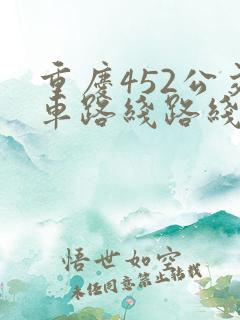 重庆452公交
车路线路线
悟世如空
未经同意禁止转载